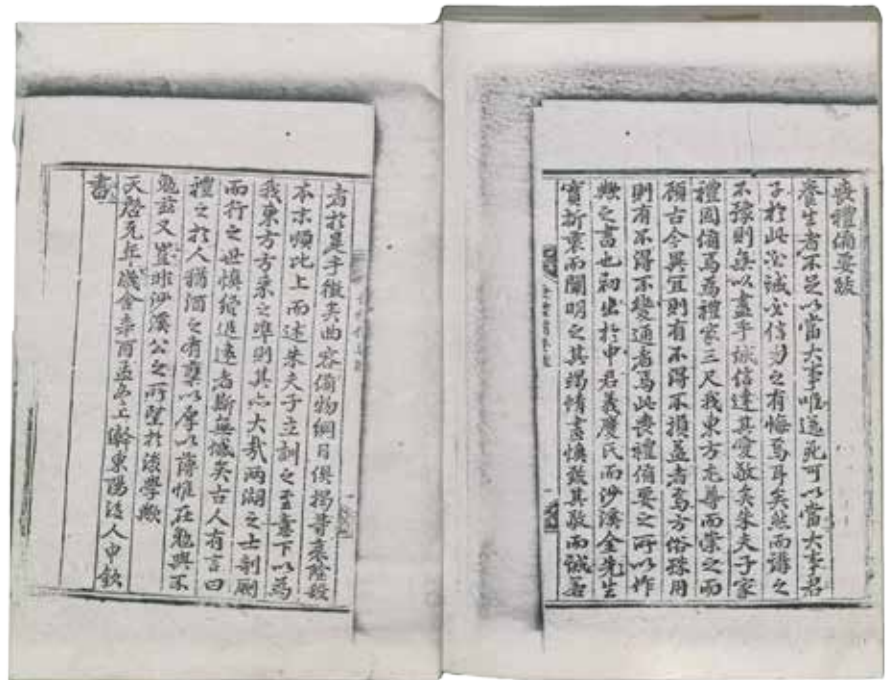 喪禮備要跋
養生者不足以當大事唯送死可以當大事君
子於此必誠必信勿之有悔焉耳矣然而講之
不豫則無以盡乎誠信達其愛敬矣朱夫子家
禮固備焉爲禮家三尺我東方尤尊而崇之而
顧古今異宜則有不得不損益者焉方俗殊用
則有不得不變通者焉此喪禮備要之所以作
歟之書也初出於申君義慶氏而沙溪金先生
實折衷而闡明之其竭情盡愼致其敬而誠若
者於是乎徵矣曲容備物綱目俱揭等衰隆殺
本末順比上而述朱夫子立訓之至意下以爲
我東方方來之準則其亦大哉兩湖之士剞劂
而行之世愼終追遠者斯無憾矣古人有言曰
禮之於人猶酒之有糱以厚以薄惟在勉與不
勉玆又豈非沙溪公之所望於後學歟
天啓元年歲舍辛酉孟冬上澣東陽後人申欽
書